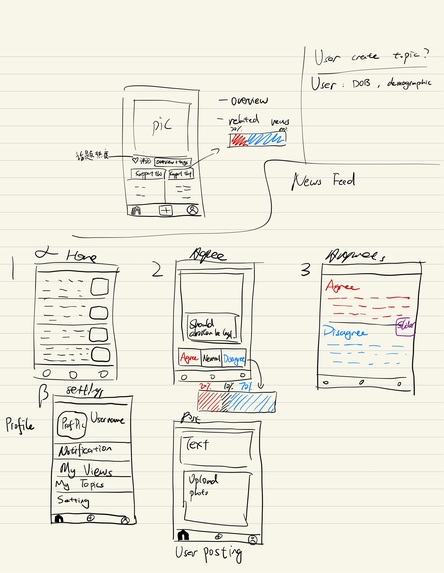 User create topic?
User : DOB , demographic
— overview
— related news
pic
70%
News Feed
1
Home
2
Agree
3
Should
abortion be legal
Agree
Neutral
Disagree
20%
10%
70%
Agree
Disagree
β
setting
Profile
Prof Pic
Username
Notification
My Views
My Topics
Setting
Post
Text
Upload
photo
User posting